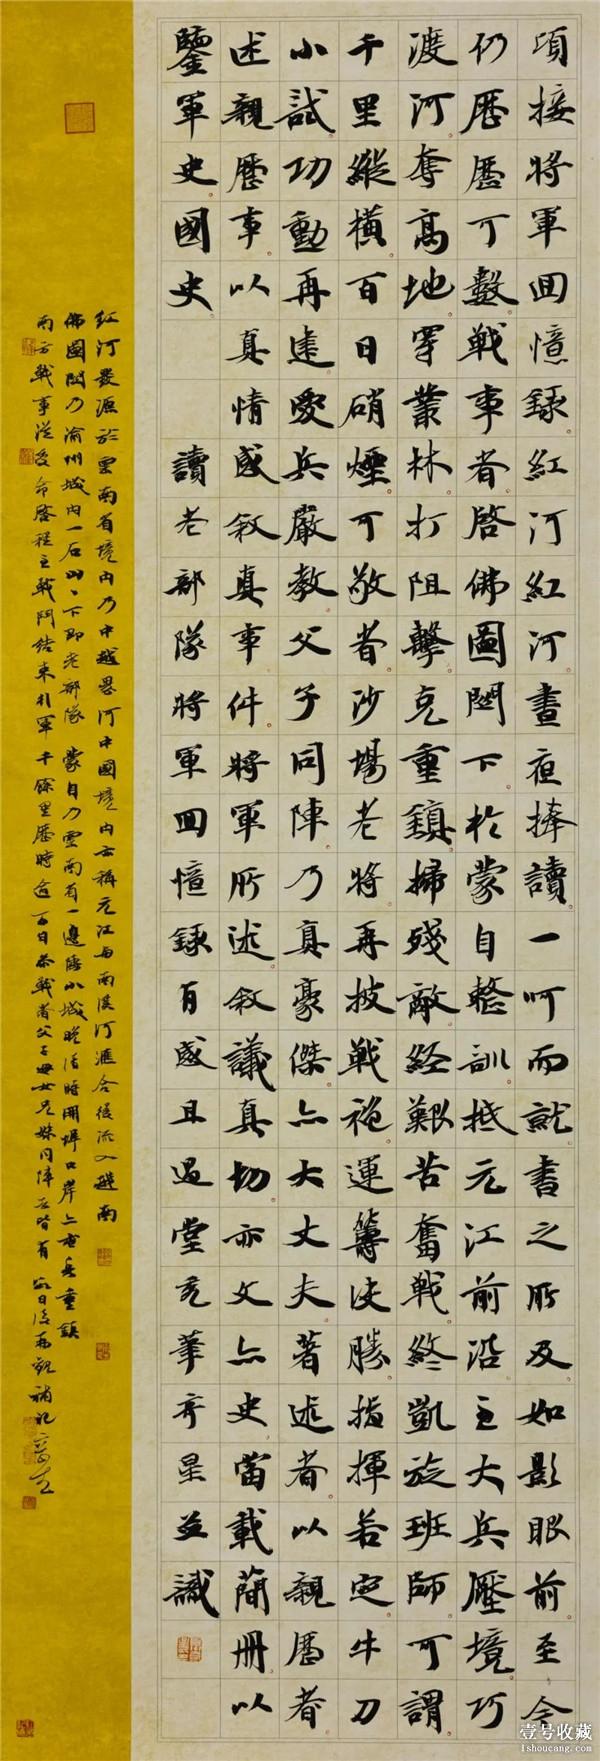 頃接將軍回憶錄紅河紅河晝夜捧讀一呵而就書之所及如影眼前至今
仍歷歷可數戰事者啓佛圖関下於蒙自整訓抵元江前沿主大兵壓境巧
渡河奪高地穿叢林打阻擊克重鎮掃殘敵經艱苦奮戰終凱旋班師可謂
千里縱橫百日硝煙可敬者沙場老將再披戰袍運籌決勝指揮若定牛刀
小試功勳再建愛兵嚴教父子同陣乃真豪傑亦大丈夫著述者以親歷者
述親歷事以真情感敘真事件將軍所述敘議真切亦文亦史當載簡冊以
鑒軍史國史 讀老部隊將軍回憶錄有感且過堂亮筆齊星並識
紅河發源於雲南省境內乃中越界河中國境內亦稱元江與南溪河滙合後流入越南
佛圖関乃渝州城內一石山下即老部隊 蒙自乃雲南省一邊陲小城晚清時開埠口岸亦重鎮
南方戰事從受命啓程至戰鬥結束行軍千餘里歷時近百日參戰者父子母女兄妹同陣亦皆有 數日後再觀補記
壹号收藏
1shoucang.com